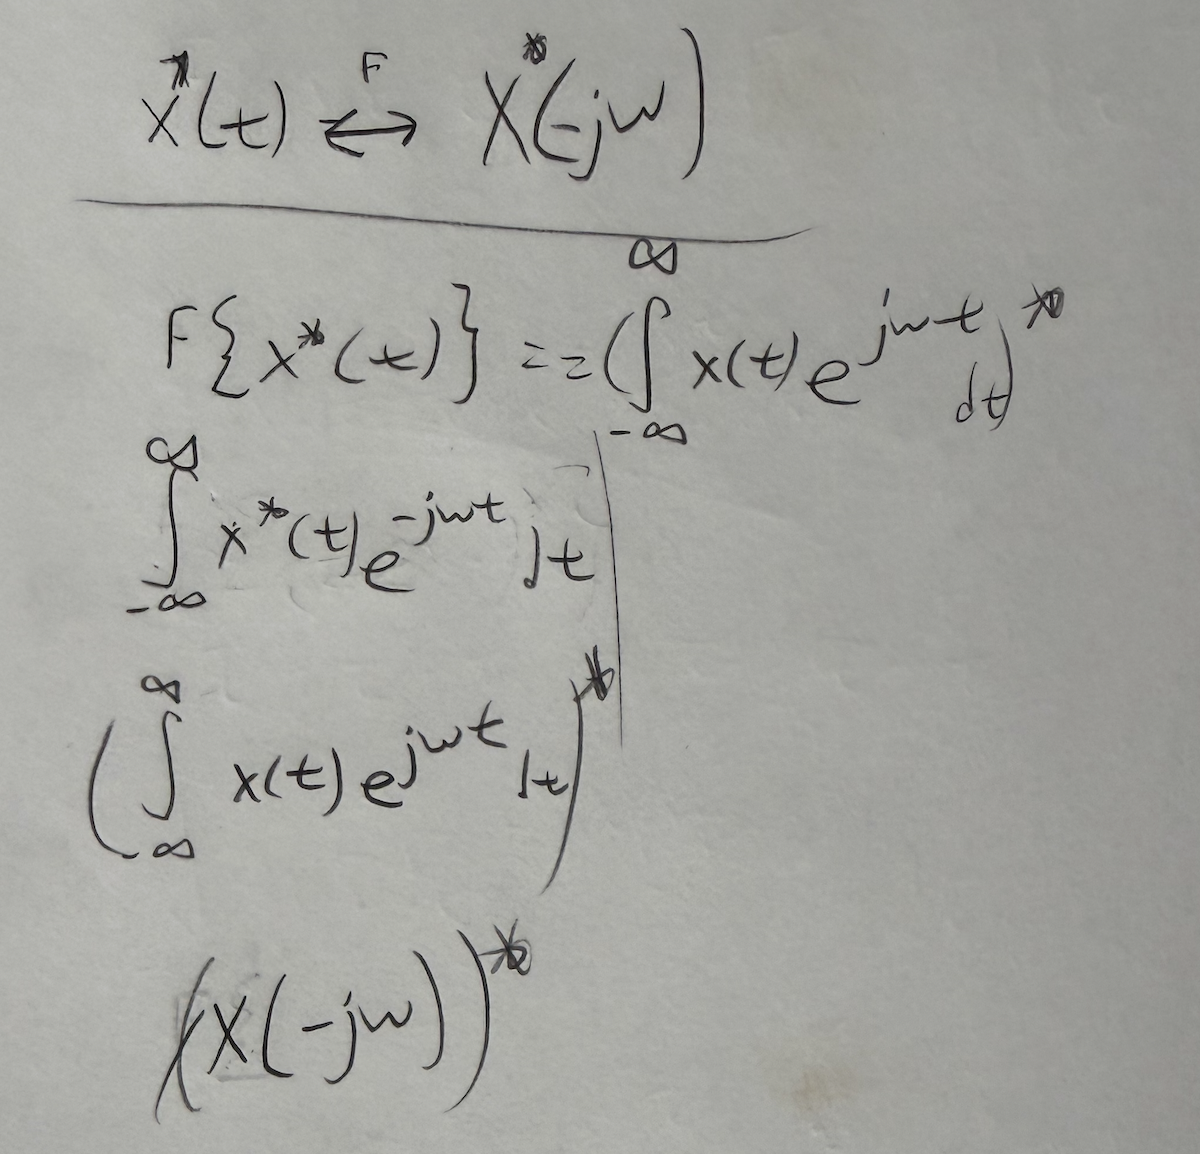 x*(t) F↔ X*(-jw)
F{x*(t)} == (∫_{-∞}^{∞} x(t) e^{jwt} dt)*
∫_{-∞}^{∞} x*(t) e^{-jwt} dt
(∫_{-∞}^{∞} x(t) e^{jwt} dt)*
(X(-jw))*